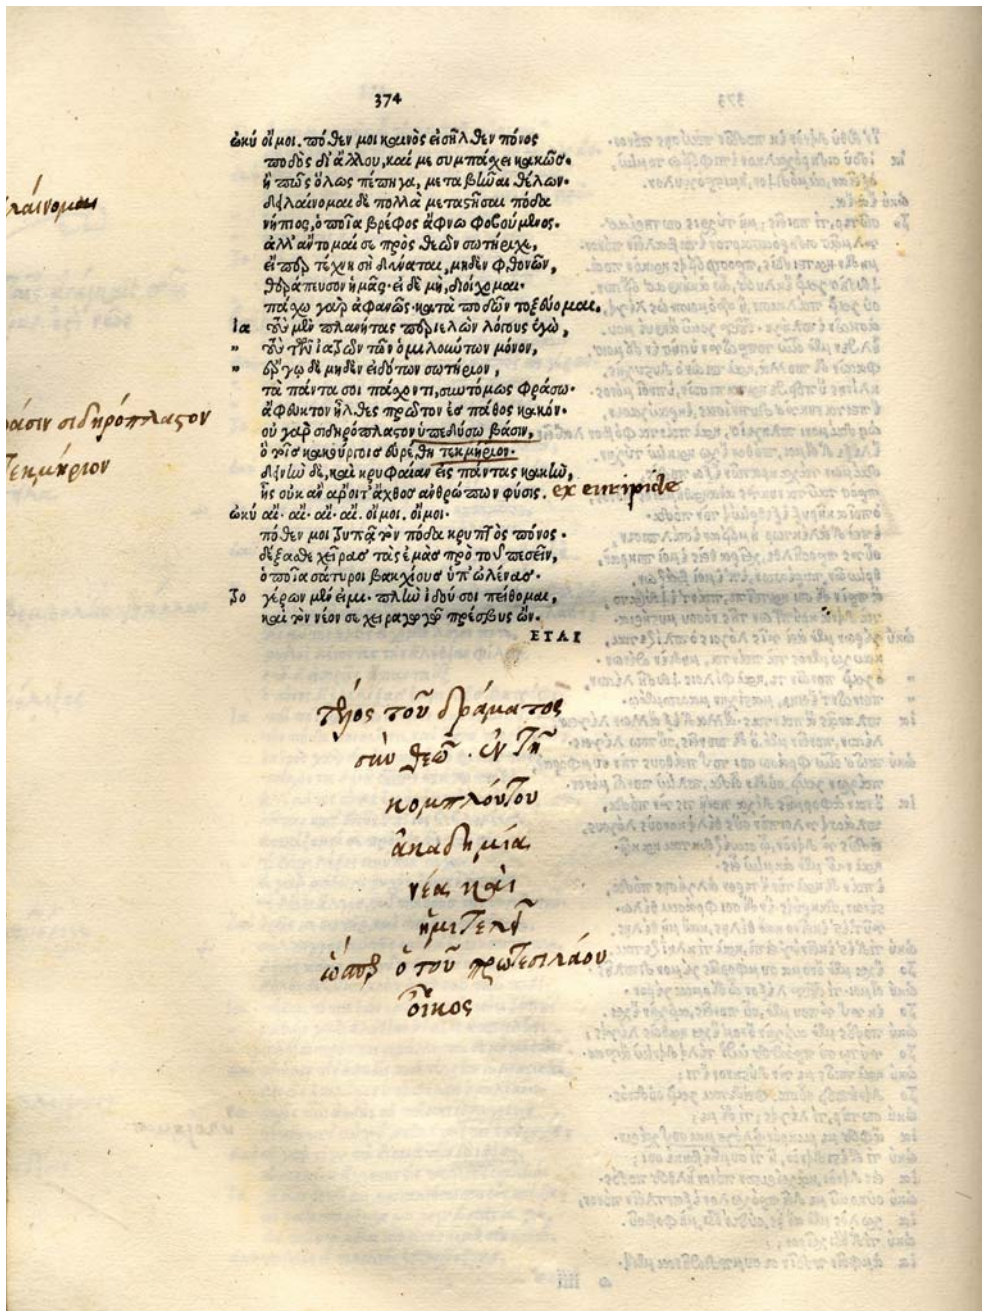 374
ὠκύ οἴμοι. πόθεν μοι καινὸς εἰσῆλθεν πόνος
ποδὸς δι' ἄλλου, καί με συμπάσχει κακῶς.
ἢ πῶς ὅλως πέπηγα, μεταβῆναι θέλων.
δειλαίνομαι δὲ πολλὰ μεταστῆσαι πόδα
λαίνομαι
νήπιος, ὁποῖα βρέφος ἄφνω φοβούμενος.
ἀλλ' ἄντομαί σε πρὸς θεῶν σωτήριχε,
εἴπερ τέχνη σὴ δύναται, μηδὲν φθονῶν,
θεράπευσον ἡμᾶς. εἰ δὲ μὴ, διοίχομαι.
πάσχω γὰρ ἀφανῶς. κατὰ ποδῶν τοξεύομαι.
Ια τοὺς μὲν πλανήτας περιελὼν λόγους ἐγὼ,
" τοὺς τῶν ἰατρῶν τῶν ὁμιλούντων μόνον,
" ἔργῳ δὲ μηδὲν εἰδότων σωτήριον,
τὰ πάντα σοι πάσχοντι, συντόμως φράσω.
ἄφευκτον ἦλθες πρῶτον ἐς πάθος κακόν.
βάσιν σιδηρόπλαστον
οὐ γὰρ σιδηρόπλαστον ὑπεδύσω βάσιν,
ὃ τοῖς κακούργοις εὑρέθη τεκμήριον.
τεκμήριον
δεινὴν δὲ, καὶ κρυφαίαν εἰς πάντας κακὴν,
ἧς οὐκ ἂν ἄροιτ' ἄχθος ἀνθρώπων φύσις. ex euripide
ὠκύ αἲ. αἲ. αἲ. αἲ. οἴμοι. οἴμοι.
πόθεν μοι τρυπᾷ τὸν πόδα κρυπτὸς πόνος.
δέξασθε χεῖρας τὰς ἐμὰς πρὸ τοῦ πεσεῖν,
ὁποῖα σάτυροι βακχίους ὑπ' ὠλένας.
Το γέρων μέν εἰμι. πλὴν ἰδού σοι πείθομαι,
καὶ τὸν νέον σε χειραγωγῶ πρέσβυς ὤν.
ΣΤΑΙ
τέλος τοῦ δράματος
σὺν θεῷ. ἐν τῇ
κομπλούτου
ἀκαδημία
νέα καὶ
ἡμιτελῆ
ὥσπερ ὁ τοῦ πρωτεσιλάου
οἶκος